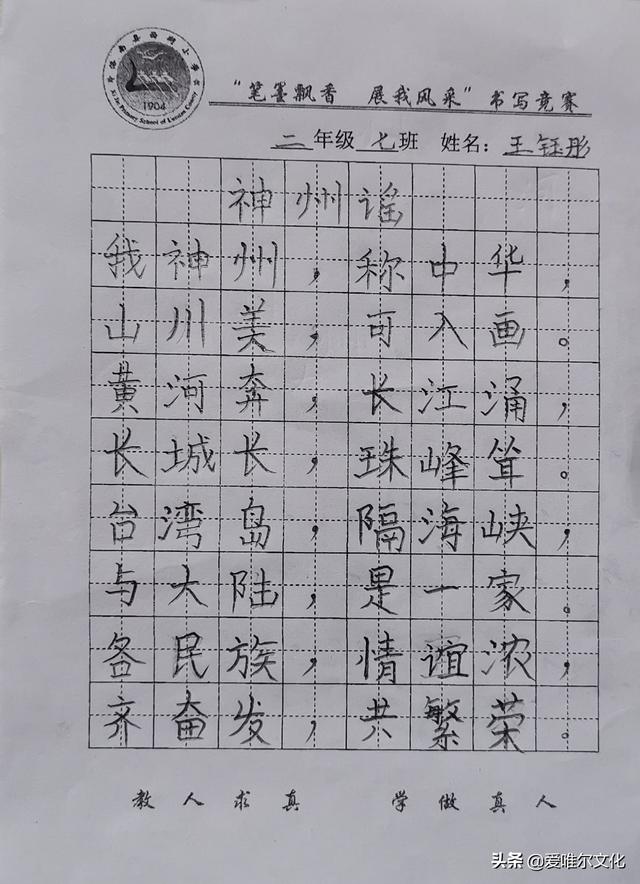 1904
"笔墨飘香 展我风采"书写竞赛
二年级七班 姓名:王钰彤
神州谣
我神州,称中华,
山川美,可入画。
黄河奔,长江涌,
长城长,珠峰耸。
台湾岛,隔海峡,
与大陆,是一家。
各民族,情谊浓,
齐奋发,共繁荣。
教人求真 学做真人
头条 @爱唯尔文化